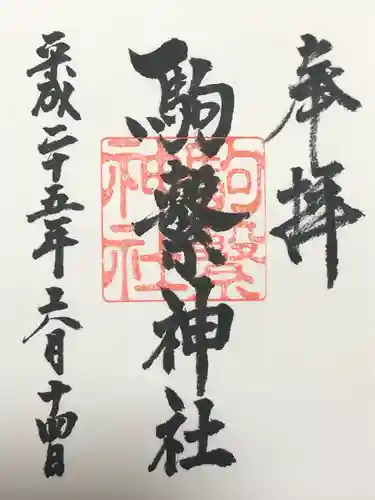 奉拝
駒繋神社
駒繋神社
平成二十五年
十四日